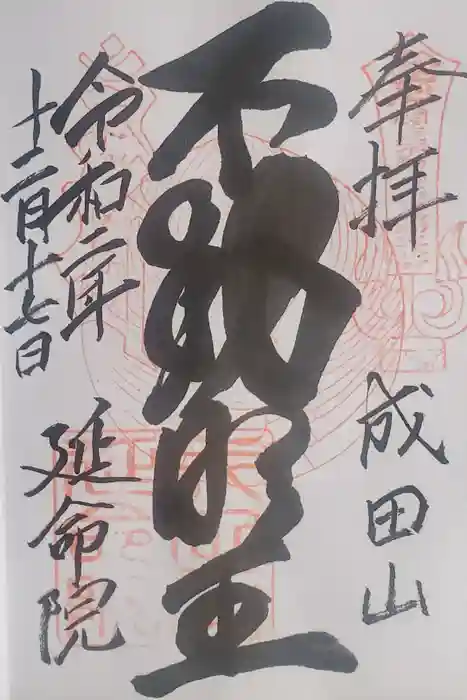 奉拝
成田山
不動明王
令和二年
十二月十七日
延命院